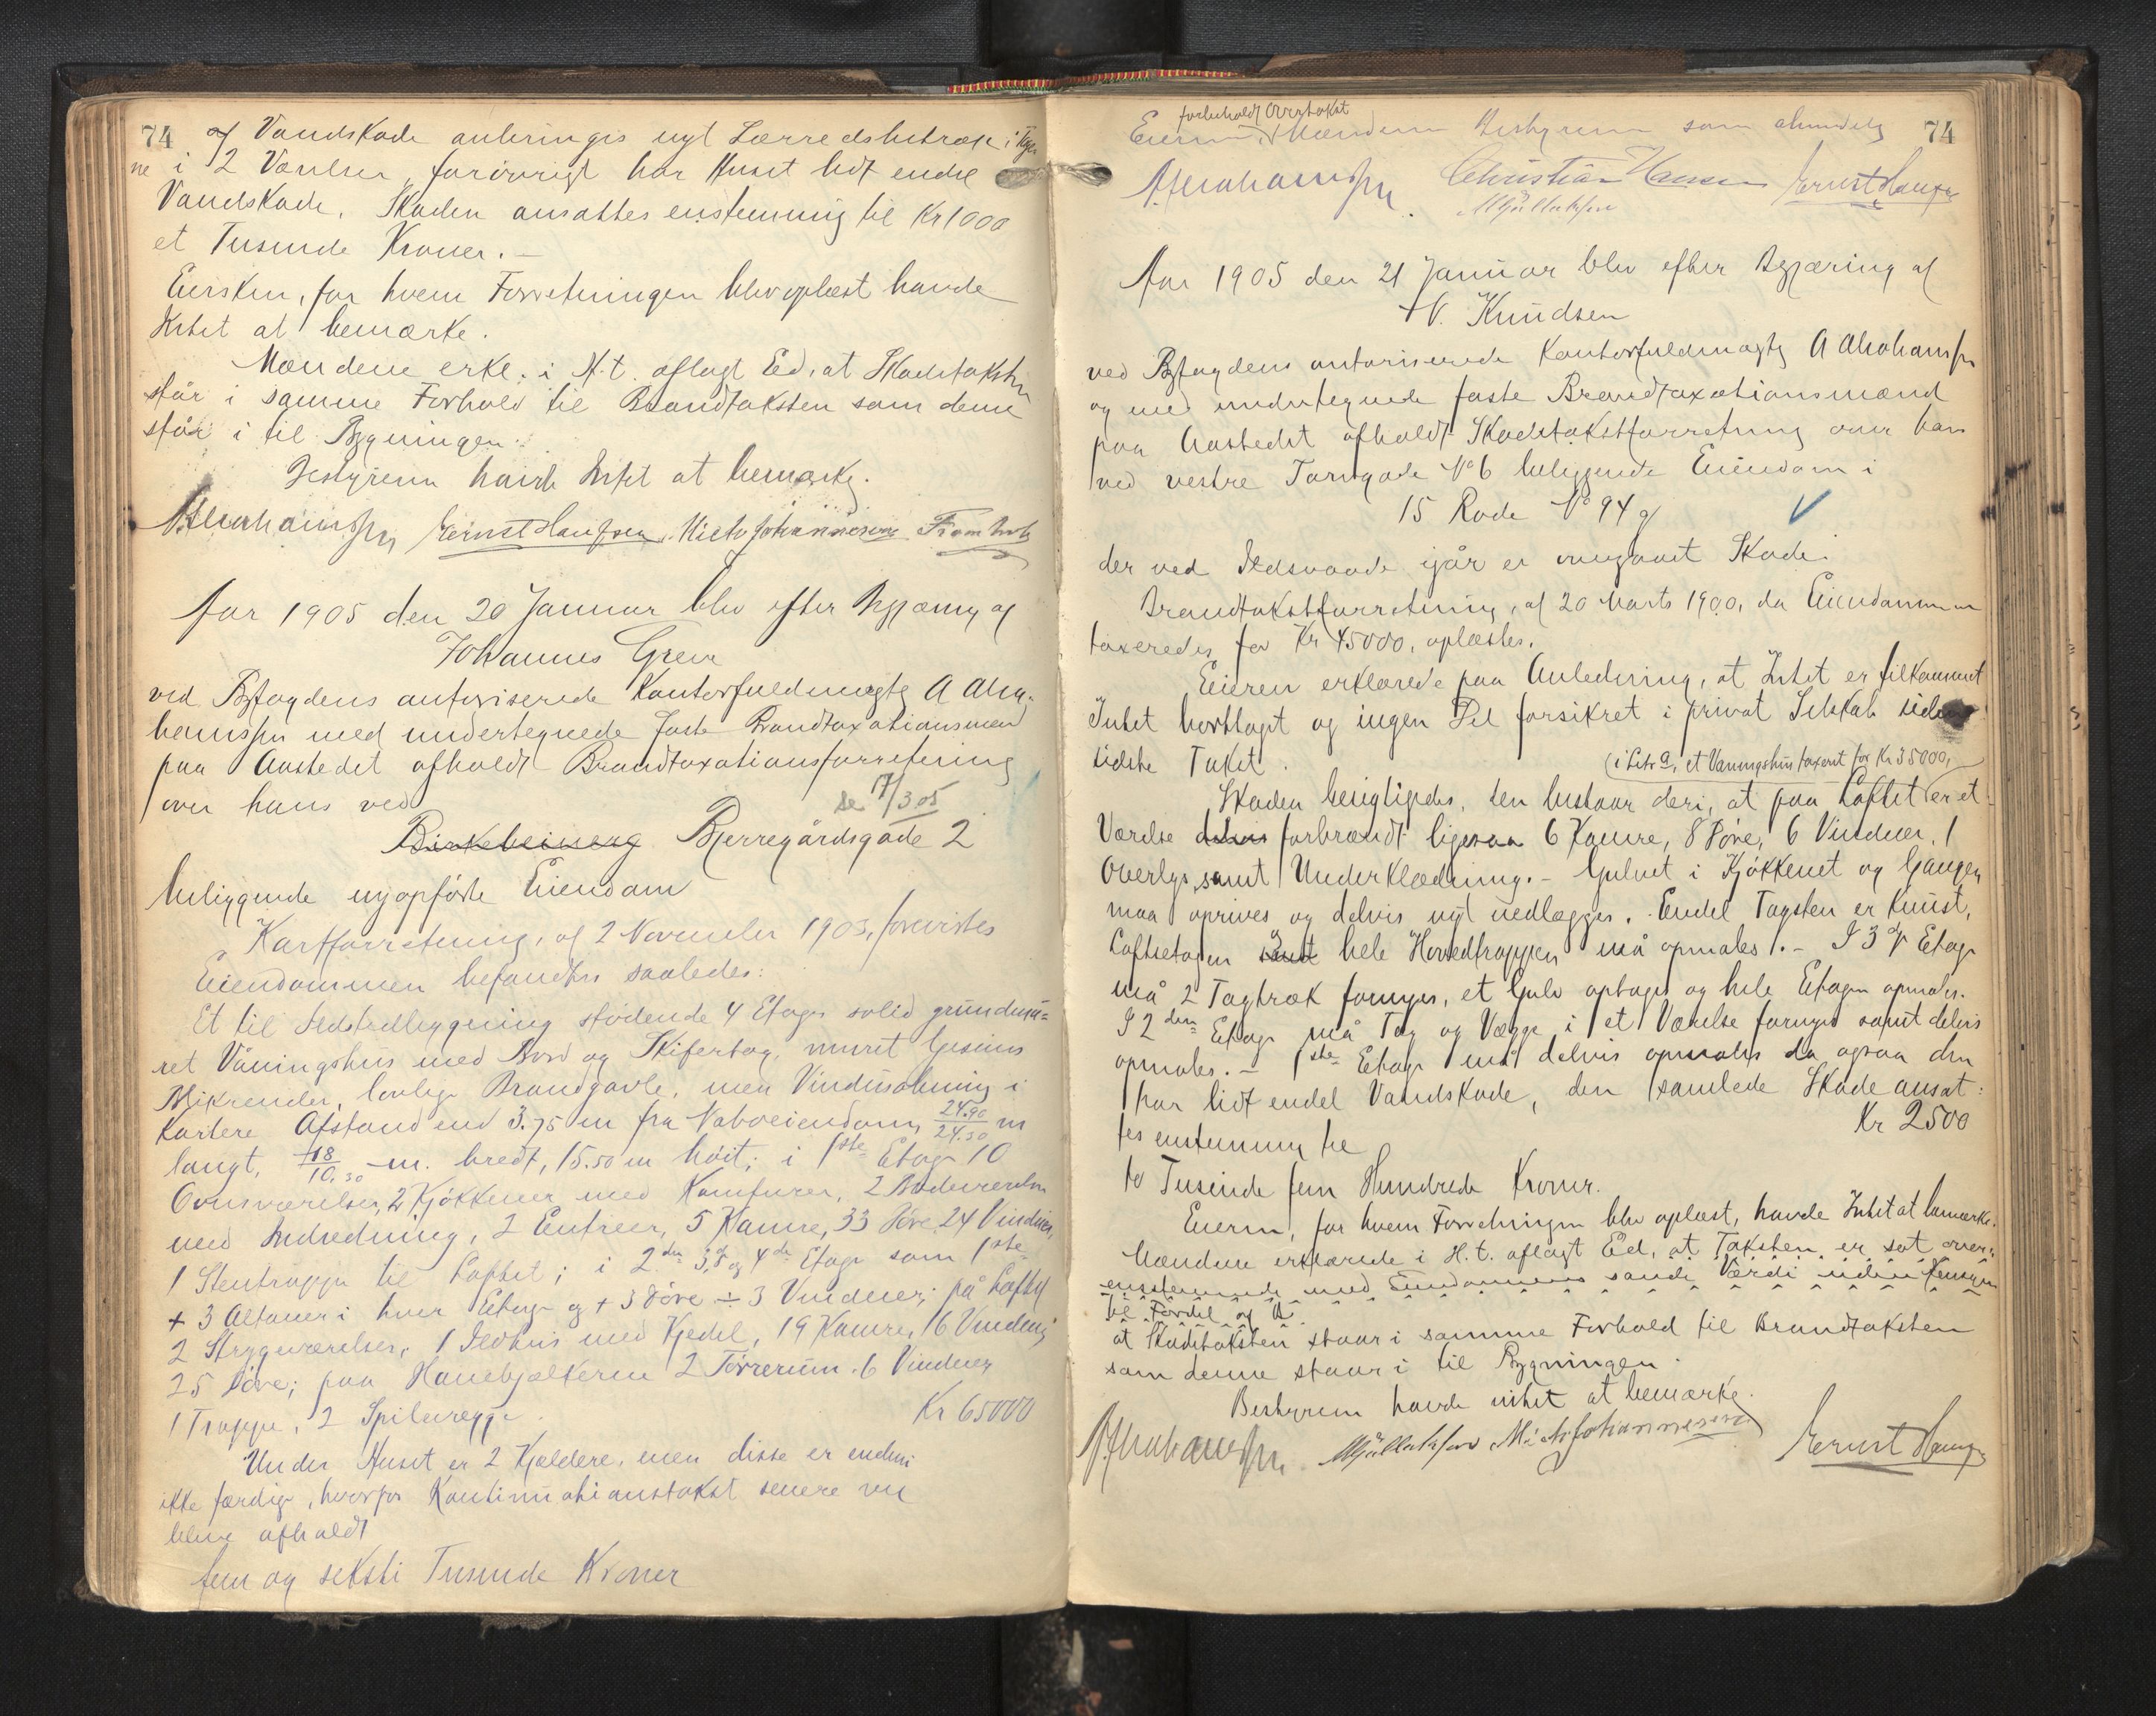 74 af Vandskade anbringes nyt Lærredsbetræk i Tage
ne i 2 Værelser, forøvrigt har Huset lidt endel
Vandskade. Skaden ansattes enstemmig til Kr 1000
et Tusinde Kroner. –
Eiersken, for hvem Forretningen blev oplæst havde
Intet at bemærke.
Mændene erkl. i H.t. aflagt Ed, at Skadetaksten
står i samme Forhold til Brandtaksten som denne
står i til Bygningen.
Bestyreren havde Intet at bemærke.
A Abrahamsen Ernst Hansen Mich Johannesen
Aar 1905 den 20 Januar blev efter Begjæring af
Johannes Greve
ved Byfogdens autoriserede Kontorfuldmægtig A Abra-
hamsen med undertegnede faste Brandtaxationsmænd
paa Aastedet afholdt Brandtaxationsforretning
over hans ved
se 17/3 05
Birkebeinerg Bjerregårdsgade 2
beliggende nyopførte Eiendom
Kartforretning, af 2 November 1903, forevistes
Eiendommen befandtes saaledes:
Et til Ildstedbygning stødende 4 Etages solid grundmu-
ret Våningshus med Bord og Skifertag, muret Gesims
Blikrender, lovlige Brandgavle, men Vinduesåbning i
kortere Afstand end 3.75 m fra Naboeiendom, 24.90/24.30 m
langt, 18/10.30 m. bredt, 15.50 m høit; i 1ste Etage 10
Ovnsværelser, 2 Kjøkkener med Komfurer, 2 Badeværelser
med Indredning, 2 Entreer, 5 Kamre, 33 Døre 24 Vinduer,
1 Stentrappe til Loftet; i 2den 3die og 4de Etage som 1ste
+ 3 Altaner i hver Etage og + 3 Døre ÷ 3 Vinduer; på Loftet
2 Strygeværelser, 1 Ildhus med Kjedel, 19 Kamre, 16 Vinduer,
25 Døre; paa Hanebjelkerne 2 Tørrerum. 6 Vinduer
1 Trappe, 2 Spilevægge. Kr 65000
Under Huset er 2 Kjældere, men disse er endnu
ikke færdige, hvorfor Kontinuationstakst senere vil
blive afholdt
fem og seksti Tusinde Kroner
forbeholdt Overtakst
Eieren, Mændene Bestyreren som almindelig 74
A Abrahamsen Christian Hansen Ernst Hansen
Aar 1905 den 21 Januar blev efter Begjæring af
N. Knudsen
ved Byfogdens autoriserede Kontorfuldmægtig A Abrahamsen
og med undertegnede faste Brandtaxationsmænd
paa Aastedet afholdt Skadetakstforretning over hans
ved vestre Torvgade No 6 beliggende Eiendom i
15 Rode No 94 g
der ved Ildsvaade igår er overgaaet Skade.
Brandtakstforretning, af 20 Marts 1900, da Eiendommen
taxeredes for Kr 45000, oplæstes.
Eieren erklærede paa Anledning, at Intet er tilkommet
Intet borttaget og ingen Del forsikret i privat Selskab siden
sidste Takst.
(i Litr a, et Vaningshus taxeret for Kr 35000,
Skaden besigtigedes, den bestaar deri, at paa Loftet er et
Værelse delvis forbrændt ligesaa 6 Kamre, 8 Døre, 6 Vinduer, 1
Overlys, samt Underklædning. – Gulvet i Kjøkkenet og Gangen
maa oprives og delvis nyt nedlægges. Endel Tagsten er knust,
Loftsetagen samt hele Hovedtrappen må opmales. – I 3die Etage
må 2 Tagtræk fornyes, et Gulv optages og hele Etagen opmales.
I 2den Etage må Tag og Vægge i et Værelse fornyes samt delvis
opmales. – 1ste Etage må delvis opmales da ogsaa den
har lidt endel Vandskade, den samlede Skade ansat-
tes enstemmig til Kr 2500
to Tusinde fem Hundrede Kroner.
Eieren, for hvem Forretningen blev oplæst, havde Intet at bemærke.
Mændene erklærede i H.t. aflagt Ed, at Taksten er sat over-
ensstemmende med Eiendommens sande Værdi uden Hensyn
til Fordel og
at Skadetaksten staar i samme Forhold til Brandtaksten
som denne staar i til Bygningen.
Bestyreren havde intet at bemærke.
A Abrahamsen Mich Johannesen Ernst Hansen